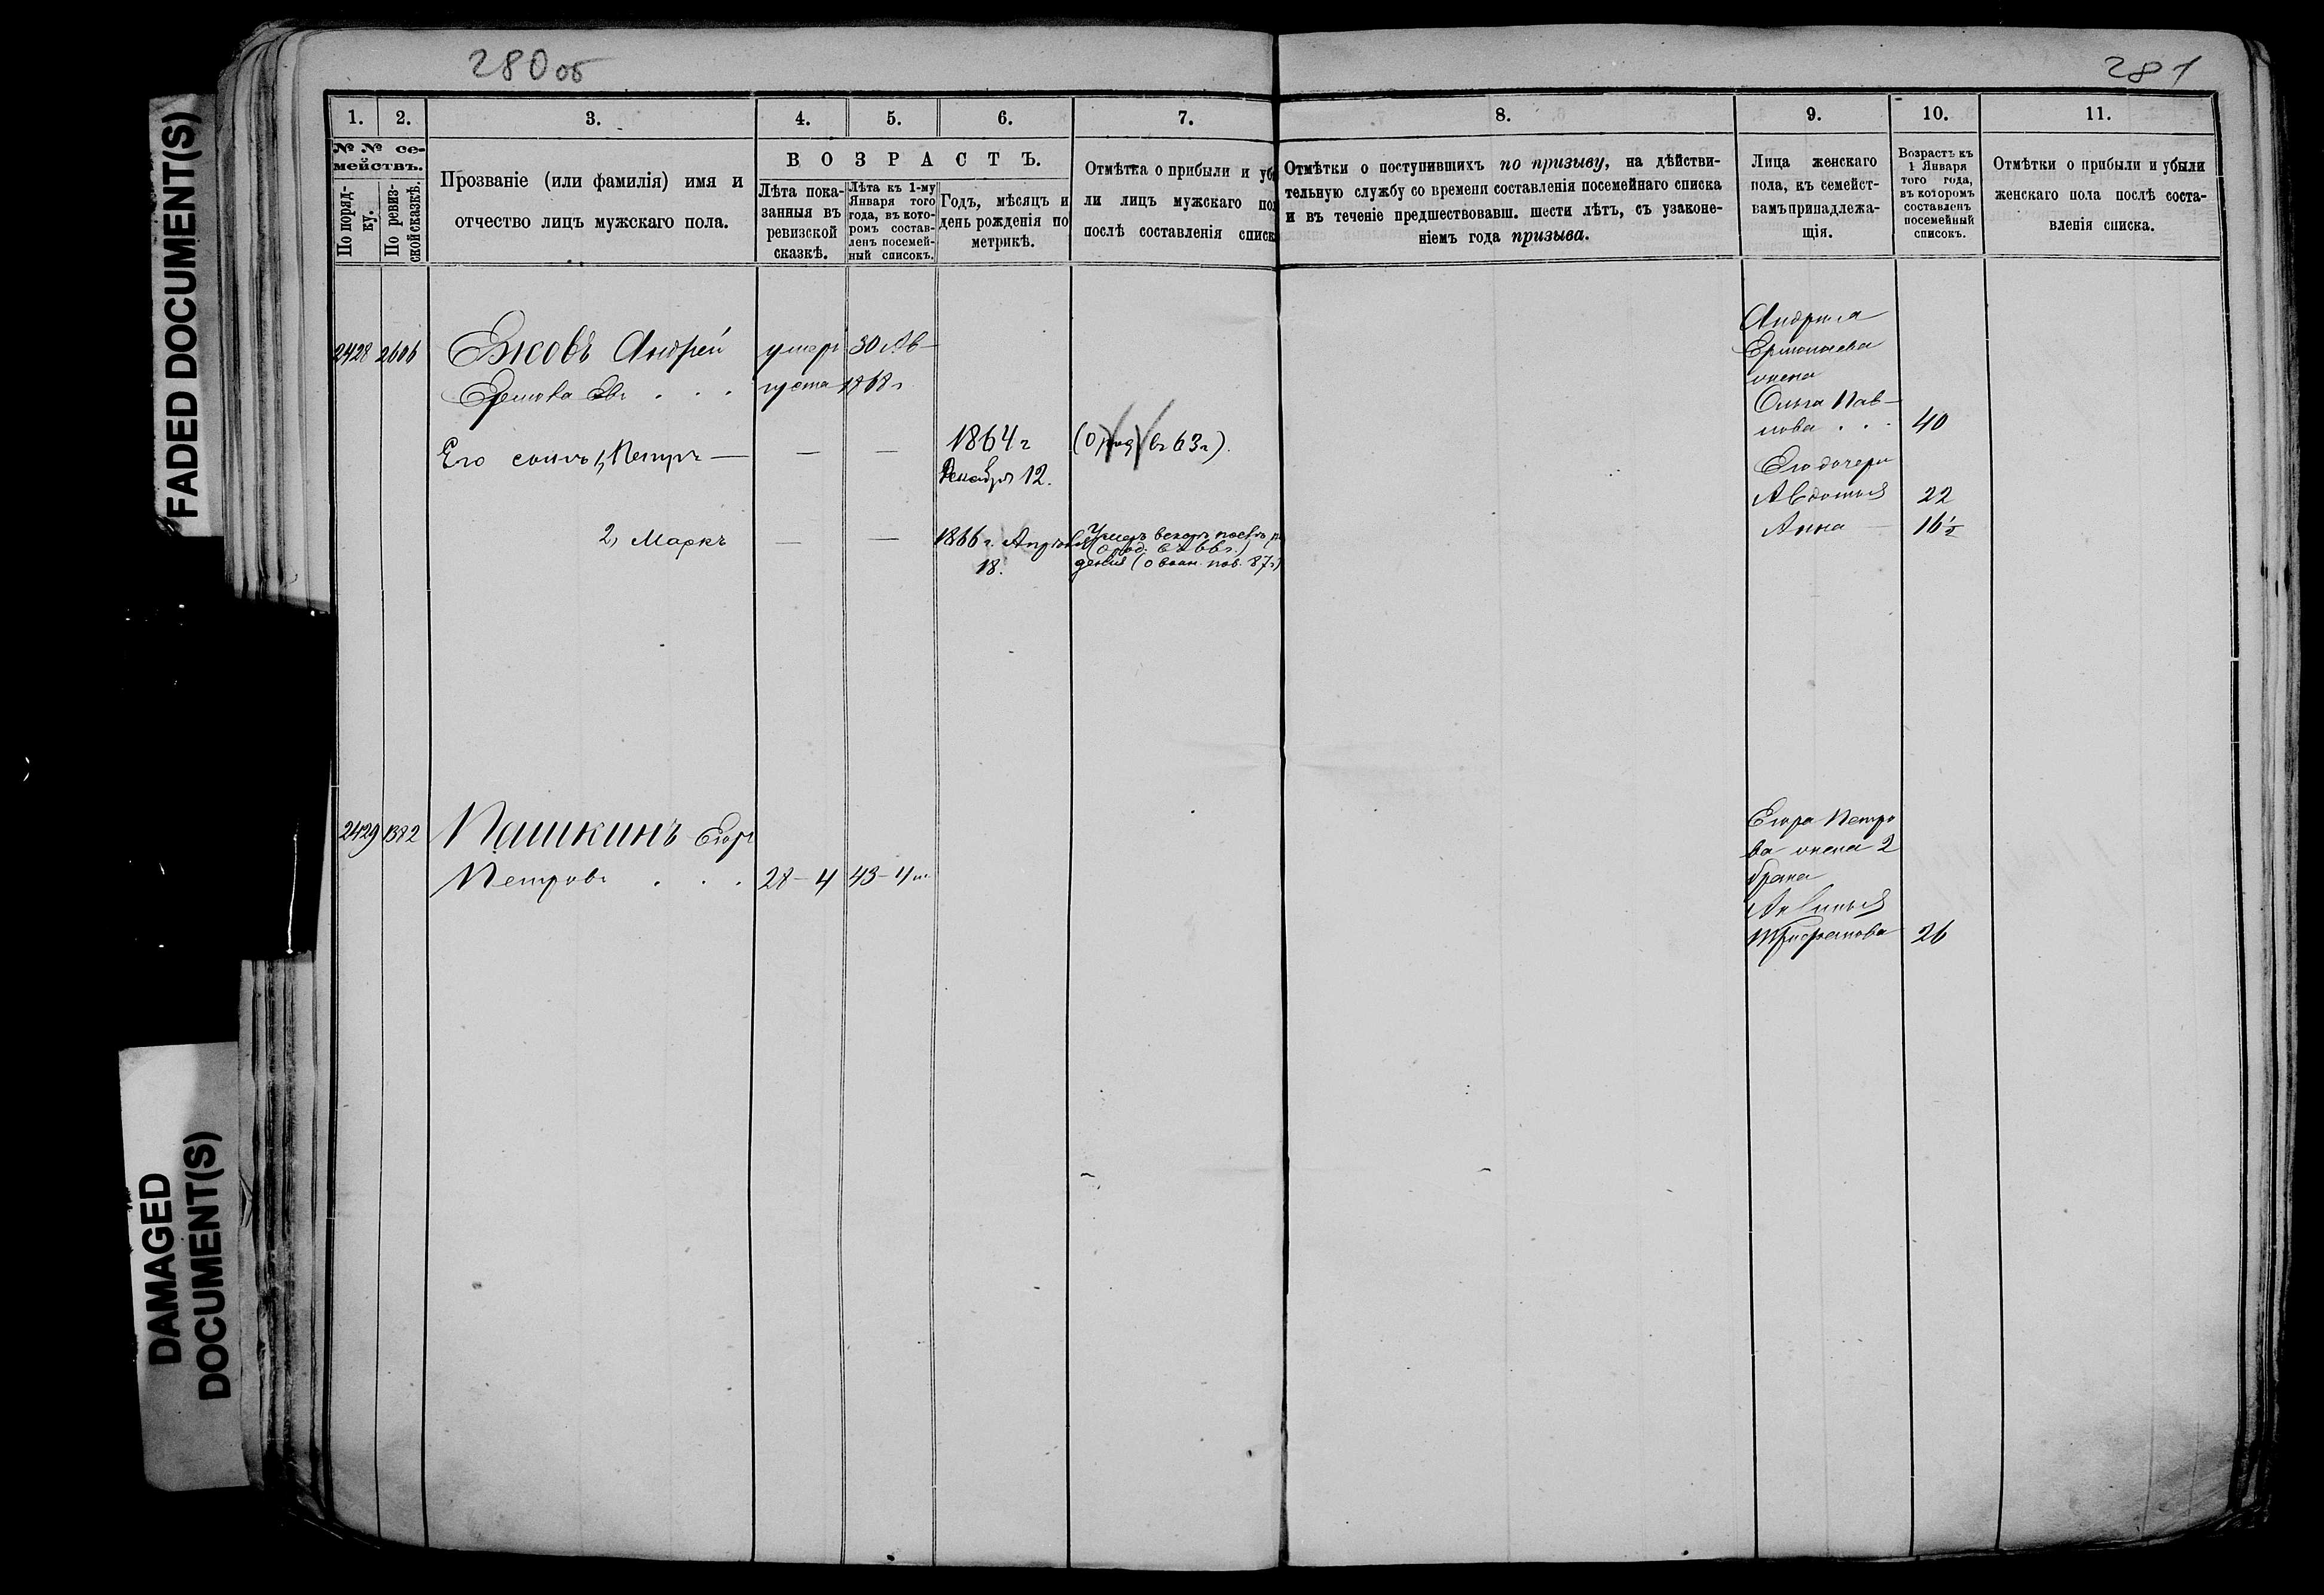 280 об
281
FADED DOCUMENT(S)
DAMAGED
DOCUMENT(S)
1. 2. 3. 4. 5. 6. 7. 8. 9. 10. 11.
№ № се-
мействъ.
По поряд-
ку.
По ревиз-
ской сказкѣ.
Прозваніе (или фамилія) имя и
отчество лицъ мужскаго пола.
ВОЗРАСТЪ.
Лѣта пока-
занныя въ
ревизской
сказкѣ.
Лѣта къ 1-му
Января того
года, въ кото-
ромъ состав-
ленъ посемей-
ный списокъ.
Годъ, мѣсяцъ и
день рожденія по
метрикѣ.
Отмѣтка о прибыли и уб
ли лицъ мужскаго по
послѣ составленія списк
Отмѣтки о поступившихъ по призыву, на дѣйстви-
тельную службу со времени составленія посемейнаго списка
и въ теченіе предшествовавш. шести лѣтъ, съ узаконе-
ніемъ года призыва.
Лица женскаго
пола, къ семейст-
вамъ принадлежа-
щія.
Возрастъ къ
1 Января
того года,
въ которомъ
составленъ
посемейный
списокъ.
Отмѣтки о прибыли и убыли
женскаго пола послѣ соста-
вленія списка.
2428 2606 Ежовъ Андрей умеръ 30 Ав-
густа 1868 г.
Его сынъ 1, Петръ — — — 1864 г
Декабря 12.
(О въ 63 г).
2, Маркъ — — 1866 г. Апрѣля
18.
Умеръ вскорѣ послѣ
(О род. въ 66 г.)
денія (о воин. пов. 87 г)
Андрея
жена
Ольга Пав-
лова . . . 40
Его дочери
Авдотья 22
Анна — 16 ½
2429 1382 Пашкинъ Егоръ
Петровъ . . . 28 – 4 43 – 4 м.
Егора Петро
ва жена 2
брака
Трифанова 26